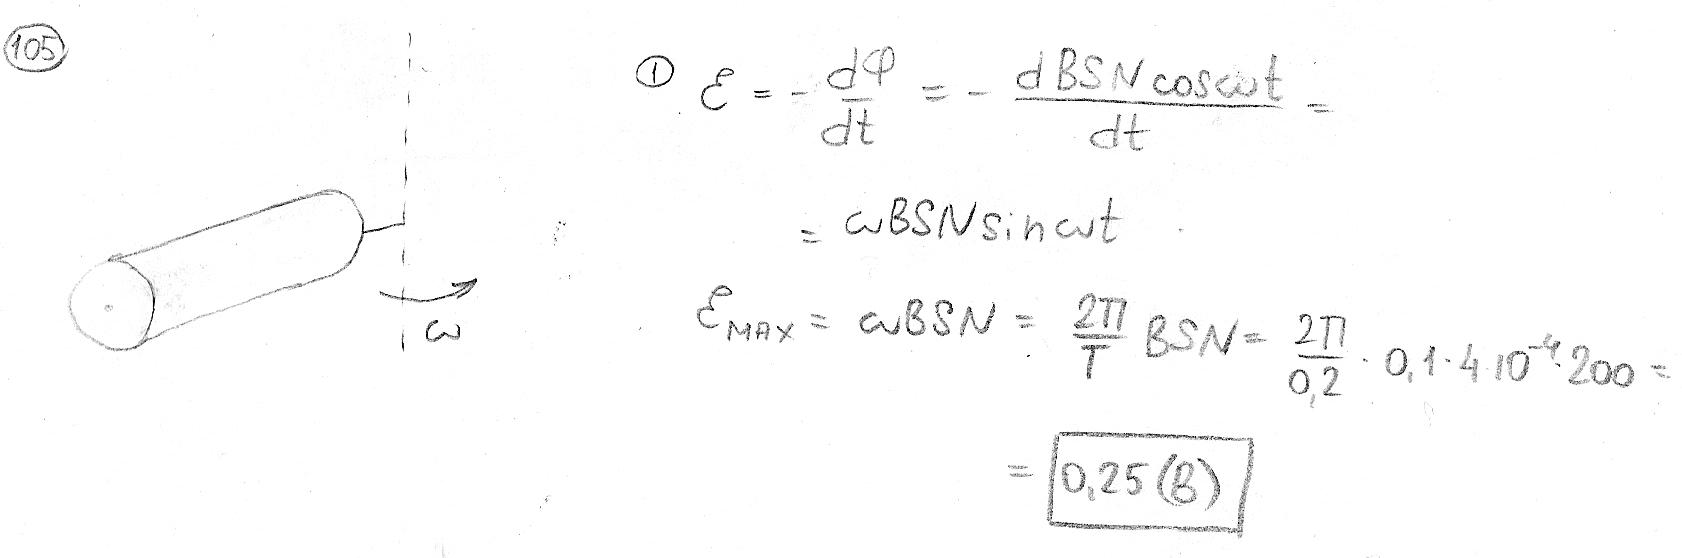 105
① ℰ = - dΦ/dt = - dBSNcosωt/dt =
= ωBSNsinωt
ω
ℰMAX = ωBSN = 2π/T BSN = 2π/0,2 · 0,1 · 4·10⁻⁴ · 200 =
= 0,25 (В)